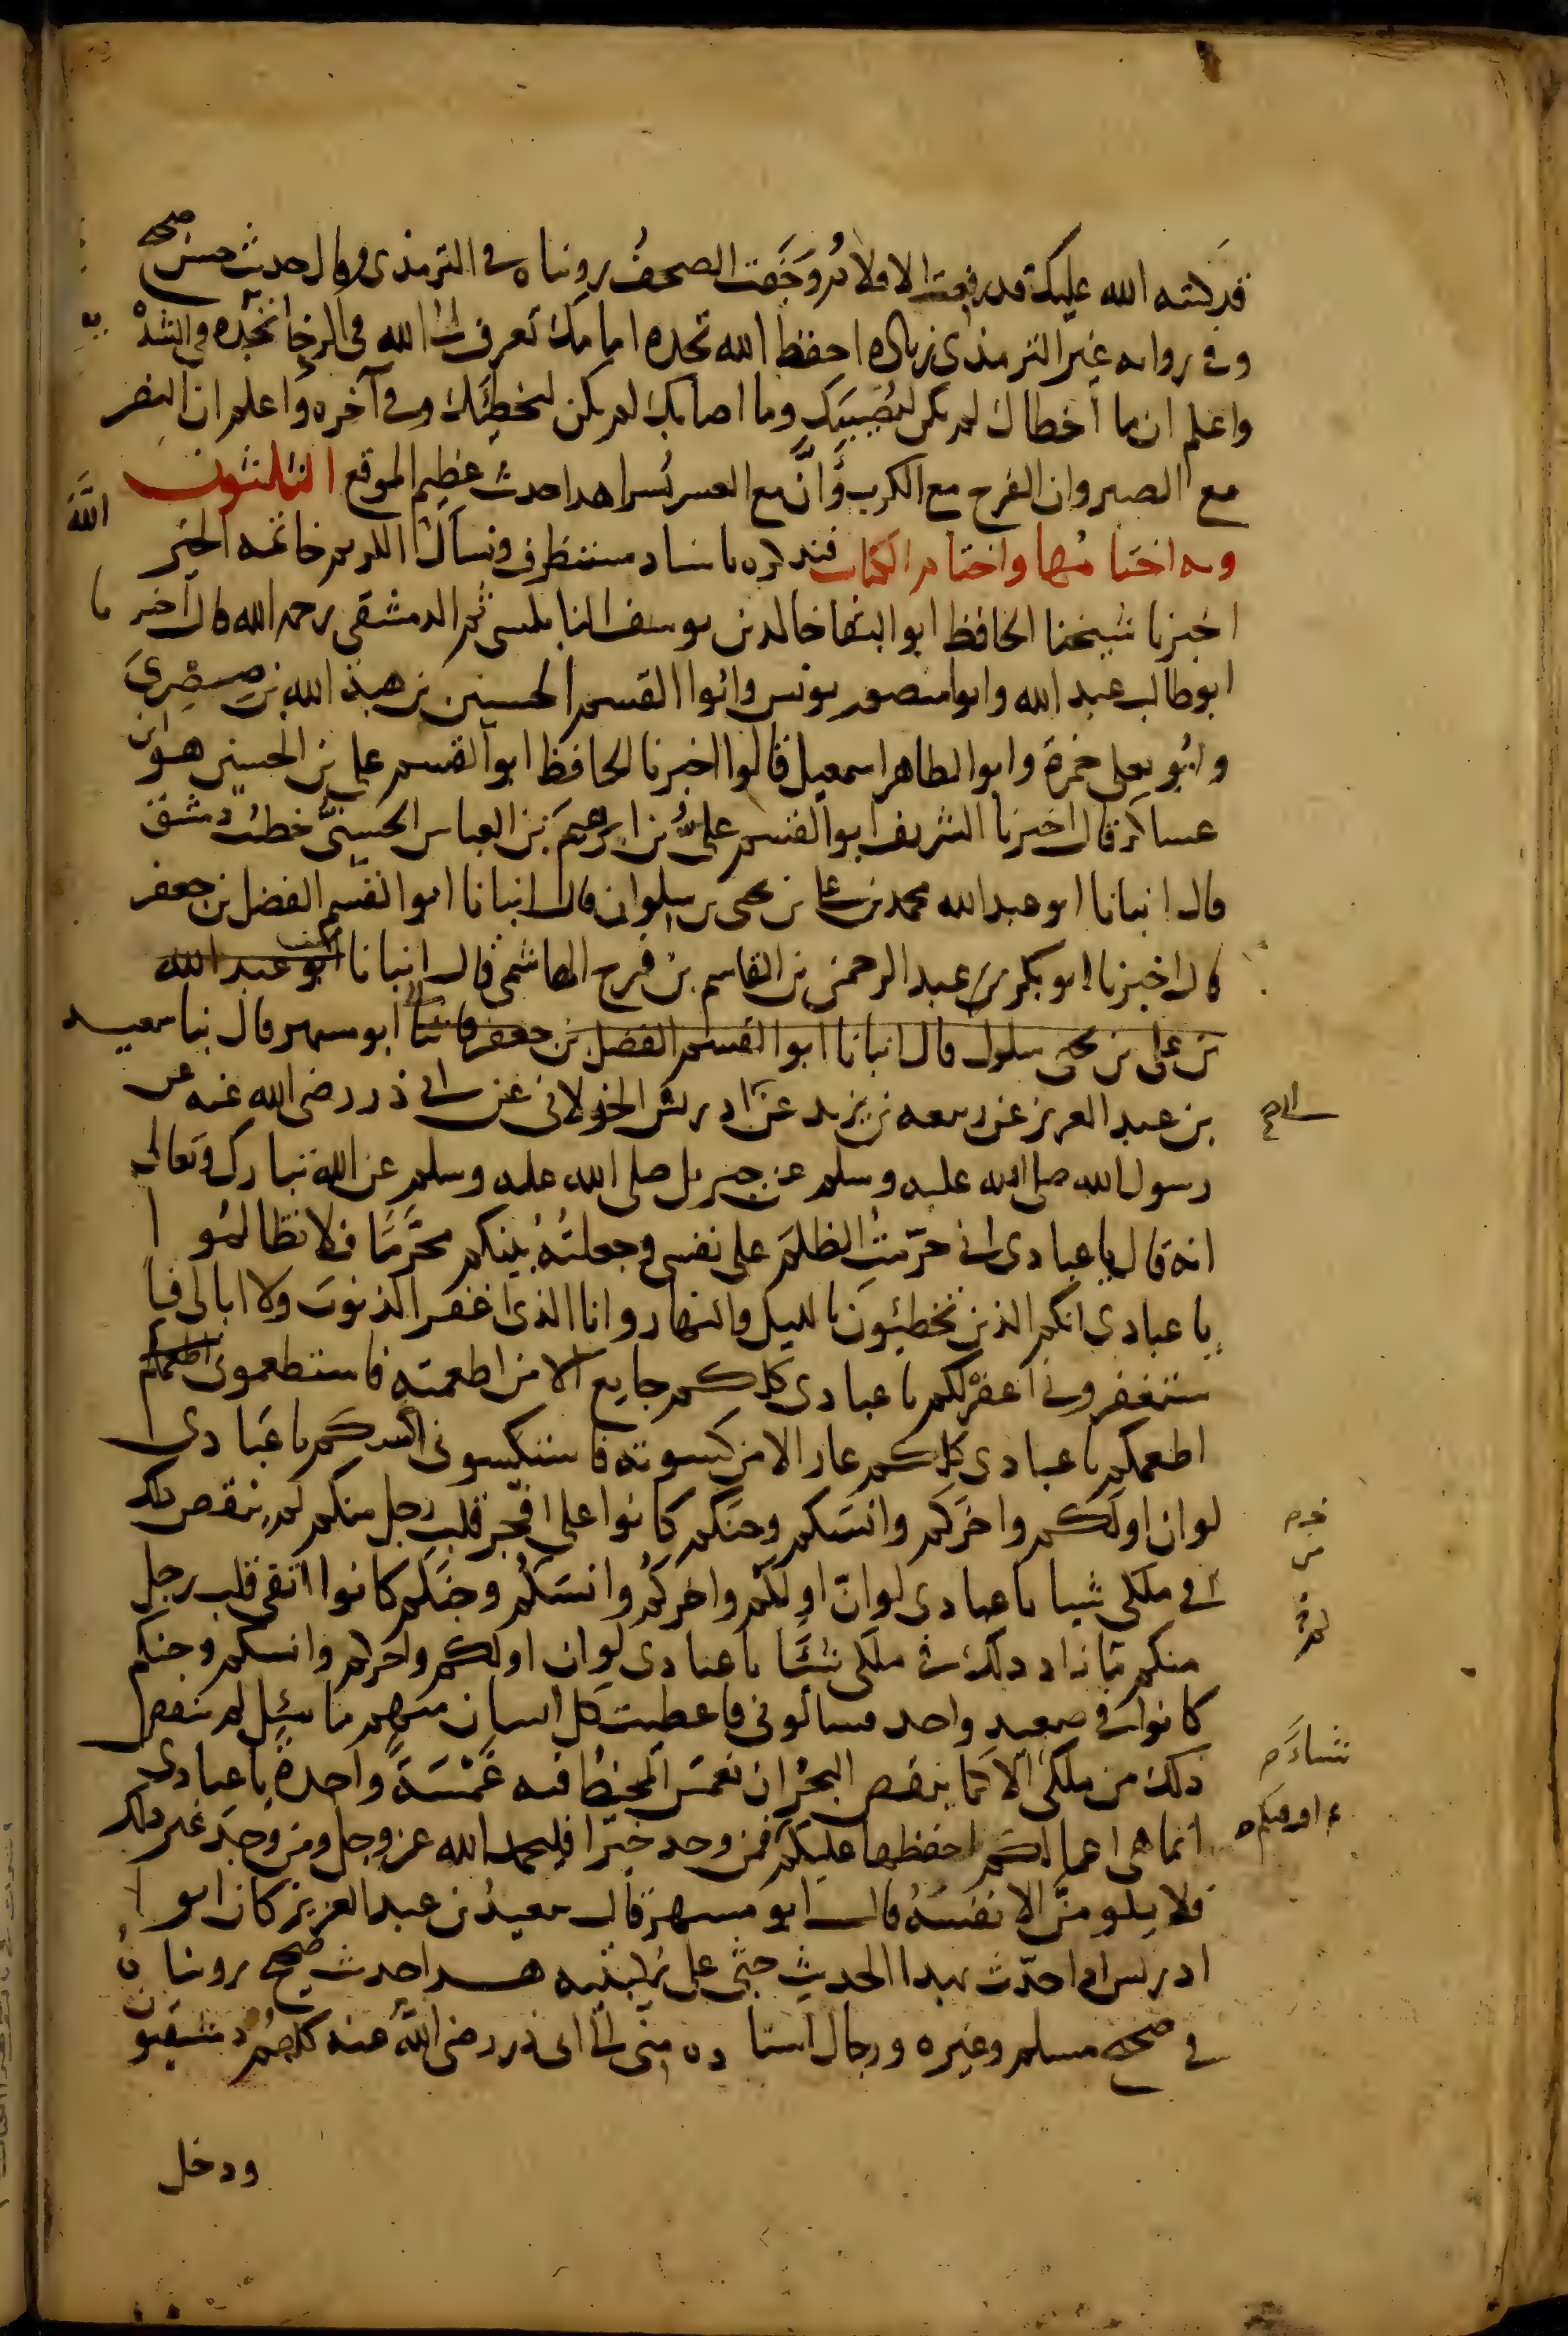 قد كتبه الله عليك قد رفعت الاقلام وجفت الصحف رويناه في الترمذي وقال حديث حسن صحيح
وفي رواية غير الترمذي زيادة احفظ الله تجده امامك تعرف الى الله في الرخا تجده في الشدة
واعلم ان ما أخطاك لم يكن ليُصيبَك وما اصابك لم يكن ليخطِئَك وفي آخره واعلم ان النصر
مع الصبر وان الفرج مع الكرب وأنَّ مع العسر يُسرا هدا حديث عظيم الموقع الثلثون
وبه اختتامُها واختتام الكتاب فنذكره باسناد مستظرف ونسأل الله الكريم خاتمه الخير
اخبرنا شيخنا الحافظ ابو البقا خالد بن يوسف النابلسي ثم الدمشقي رحمه الله قال اخبرنا
ابو طالب عبد الله وابو منصور يونس وابوا القسم الحسين بن هبة الله بن صِصْرَى
وابُو يعلى حمزة وابو الطاهر اسمعيل قالوا اخبرنا الحافظ ابو القسم علي بن الحسين هو ابن
عساكر قال اخبرنا الشريف ابو القسم عليُّ بن ابرهيم بن العباس الحسينيُّ خطيب دمشق
قال انبانا ابو عبد الله محمد بن علي بن يحيى بن سلوان قال انبانا ابو القسم الفضل بن جعفر
قال اخبرنا ابو بكر بن عبد الرحمن بن القاسم بن فرج الهاشمي قال انبانا ابو عبد الله
بن علي بن يحيى سلول قال انبانا ابوا القسم الفضل بن جعفر قال ثنا ابو مسهر قال ثنا سعيد
بن عبد العزيز عن ربيعه بن يزيد عن ادريس الخولاني عن ابي ذر رضى الله عنه عن
رسول الله صلى الله عليه وسلم عن جبريل صلى الله عليه وسلم عن الله تبارك وتعالى
انه قال يا عبادى انى حرّمتُ الظلمَ على نفسى وجعلتُهُ بينكم محَرَّمًا فلا تظالمُوا
يا عبادى انكم الذين تخطِئون بالليل والنهار وانا الذى اغفر الذنوبَ ولا ابالى فا
ستغفرونى أغفرْ لكم يا عبادى كلكم جايع الا من اطعمته فاستطعمونى اطعمكم
اطعمكم يا عبادى كلكم عار الا من كسوته فاستكسونى اكسكم يا عبادى
لو ان اولكم واخرَكم وانسَكم وجنَكم كانوا على افجر قلب رجل منكم لم ينقص ذلك
في ملكى شيا يا عبادى لو انّ اولَكُم واخركُم وانسَكُم وجنَكم كانوا اتقى قلب رجل
منكم ما زاد ذلك في ملكى شيئًا يا عبادى لو ان اولكم واخركم وانسكم وجنكم
كانوا في صعيدٍ واحد فسألونى فاعطيت كل انسان منهم ما سئل لم ينقص
ذلك من ملكى الا كما ينقص البحرُ ان يغمسَ المخيَطُ فيه غَمْسَةً واحدةً يا عبادى
انما هى اعمالكم احفظها عليكم فمن وجد خيرًا فليحمد الله عز وجل ومن وجَد غير ذلك
فلا يلومنّ الا نفسَهُ قال ابو مسهر قال سعيدُ بن عبد العزيز كان ابو ا
ادريس اذا حدّث بهذا الحديث جثى على ركبتيه هدا حديث صحيح رويناهُ
في صحيح مسلم وغيره ورجال اسناده منى الى ابى ذر رضى الله عنه كلهم دمشقيون
ودخل